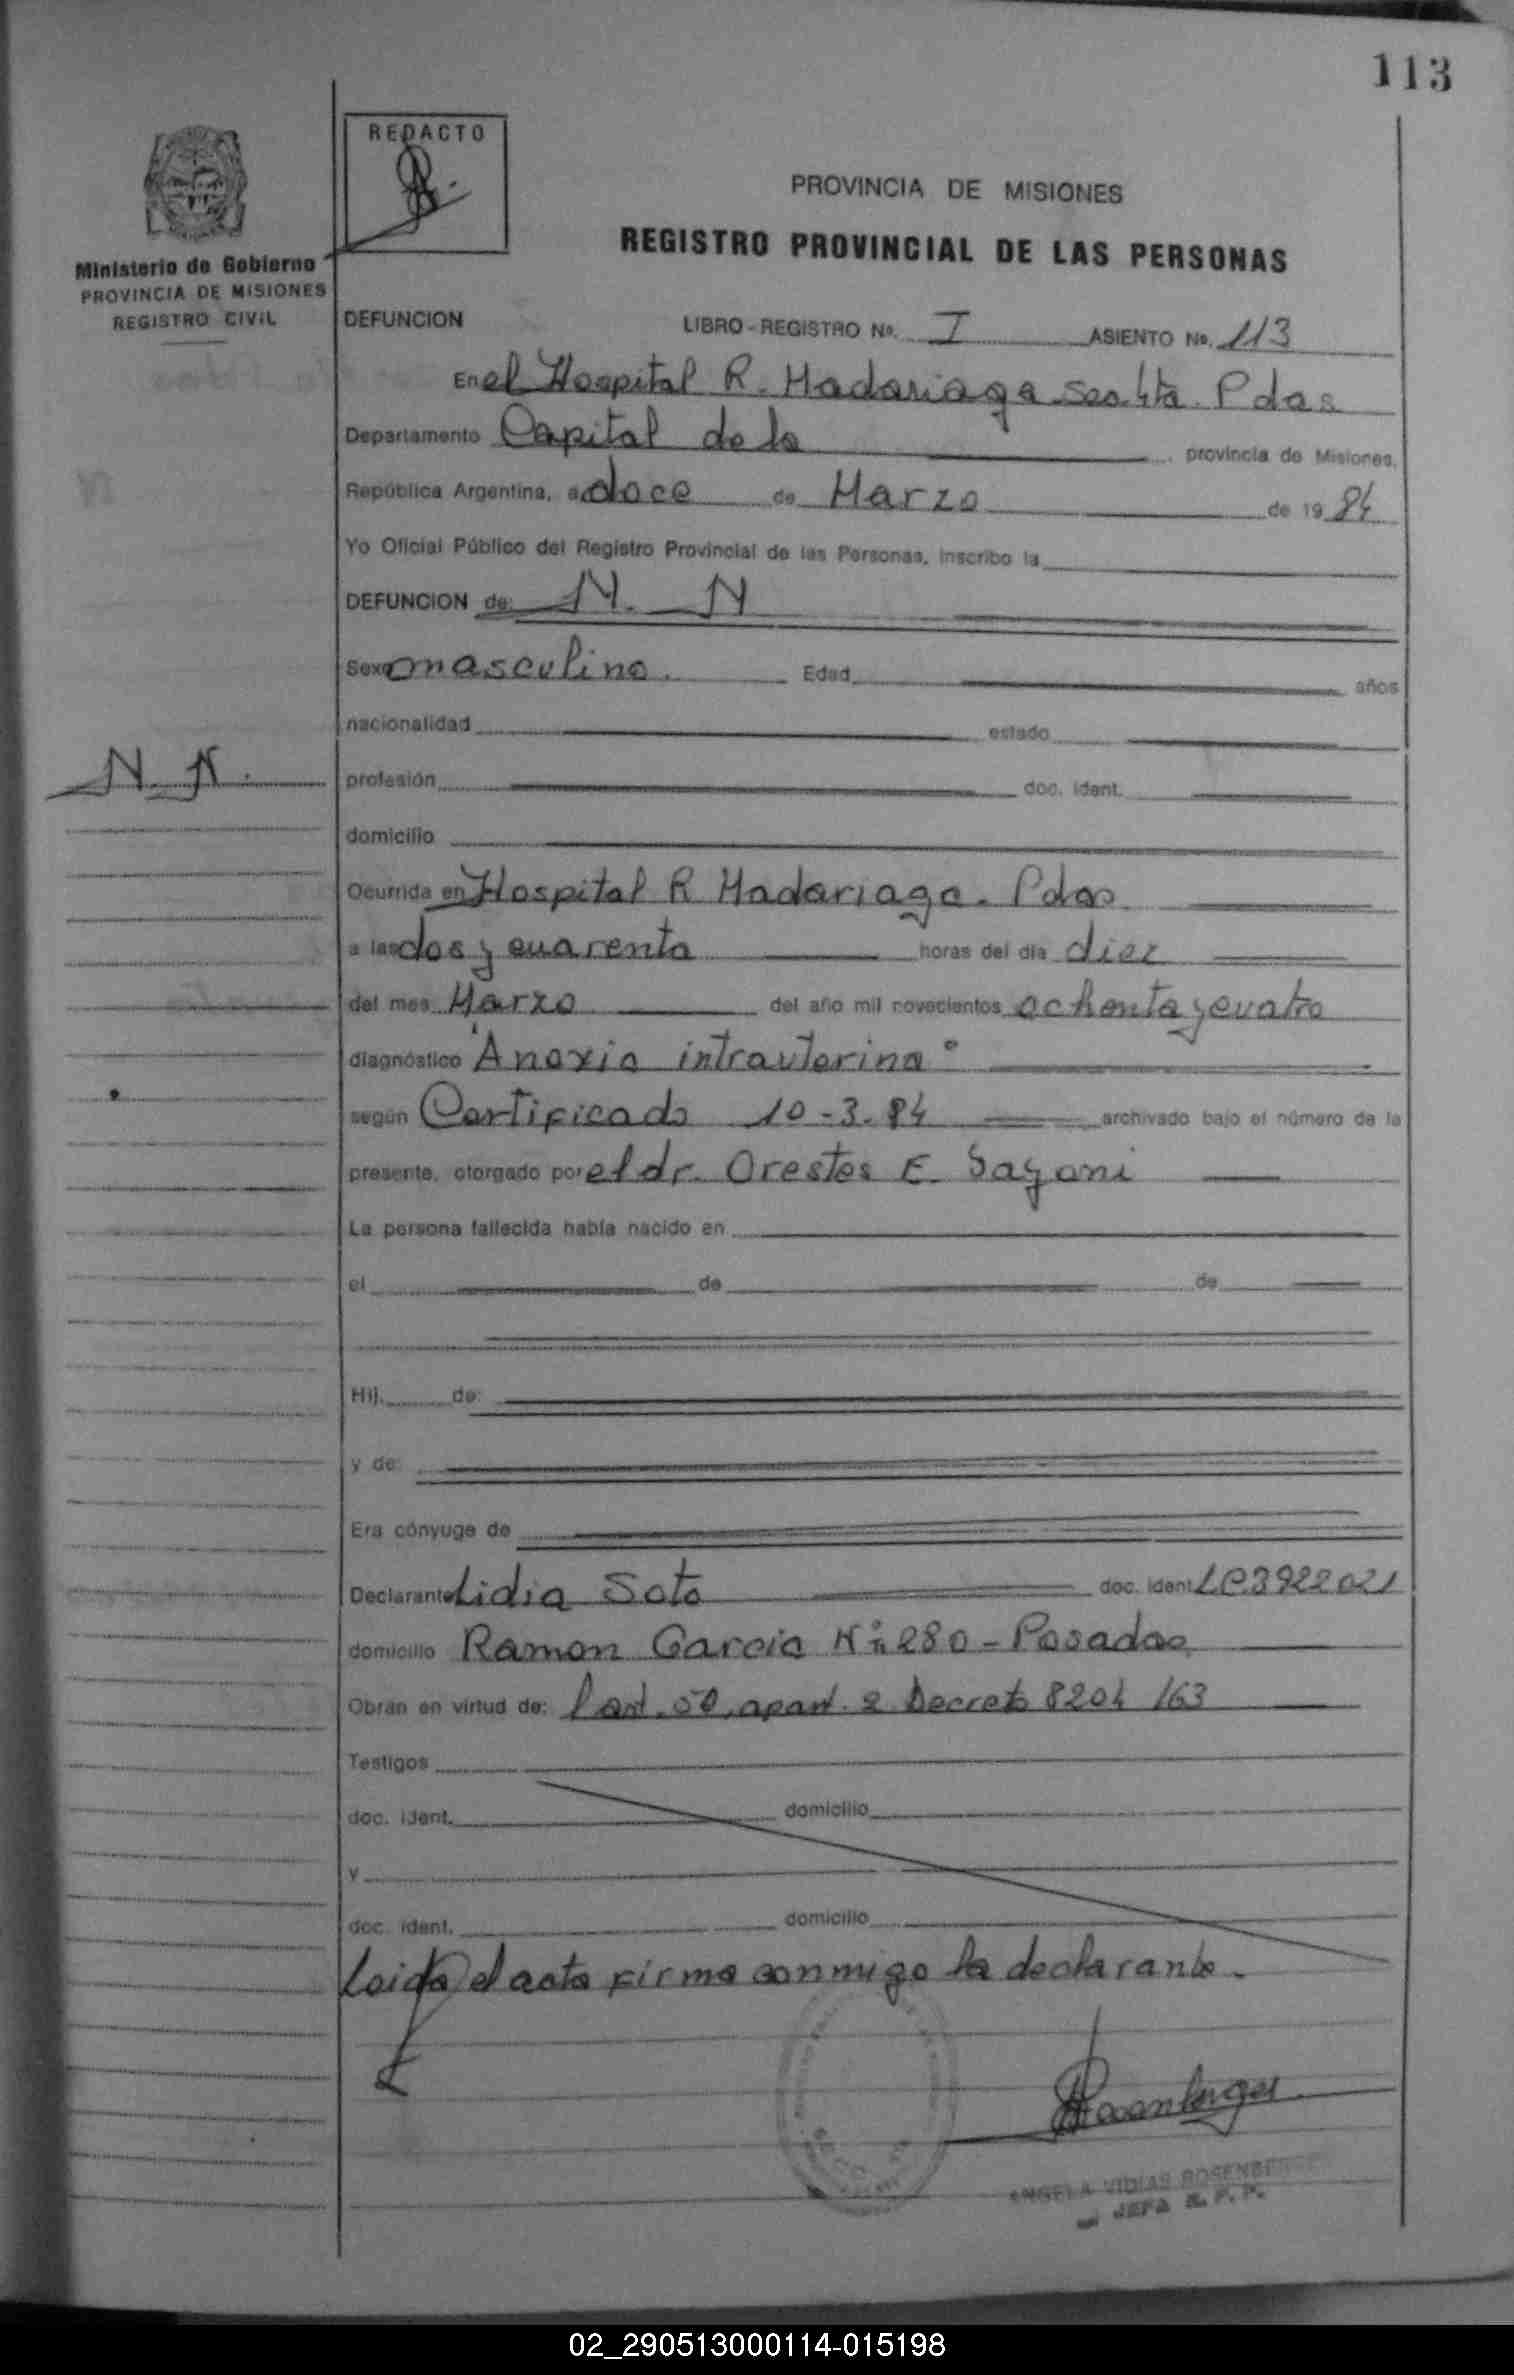 113
REDACTO
Ministerio de Gobierno
PROVINCIA DE MISIONES
REGISTRO CIVIL
PROVINCIA DE MISIONES
REGISTRO PROVINCIAL DE LAS PERSONAS
DEFUNCION LIBRO-REGISTRO No. I ASIENTO No. 113
En el Hospital R. Madariaga Sec. 4ta. Pdas
Departamento Capital de la provincia de Misiones,
República Argentina, a doce de Marzo de 1984
Yo Oficial Público del Registro Provincial de las Personas, inscribo la
DEFUNCION de: N. N
Sexo masculino. Edad años
nacionalidad estado
N. N.
profesión doc. ident.
domicilio
Ocurrida en Hospital R Madariaga. Pdas
a las dos y cuarenta horas del día diez
del mes Marzo del año mil novecientos ochenta y cuatro
diagnóstico "Anoxia intrauterina"
según Certificado 10-3-84 archivado bajo el número de la
presente, otorgado por el dr. Orestes E.
La persona fallecida había nacido en
el de de
Hij. de:
y de:
Era cónyuge de
Declarante Lidia Soto doc. ident. LC3922021
domicilio Ramon Garcia Nº 280 - Posadas
Obran en virtud de: l art. 50, apart. 2 Decreto 8204/63
Testigos
doc. ident. domicilio
y
doc. ident. domicilio
Leida el acta firma conmigo la declarante.
ANGELA VIDIAS ROSENBERGER
JEFA R. P. P.
02_290513000114-015198